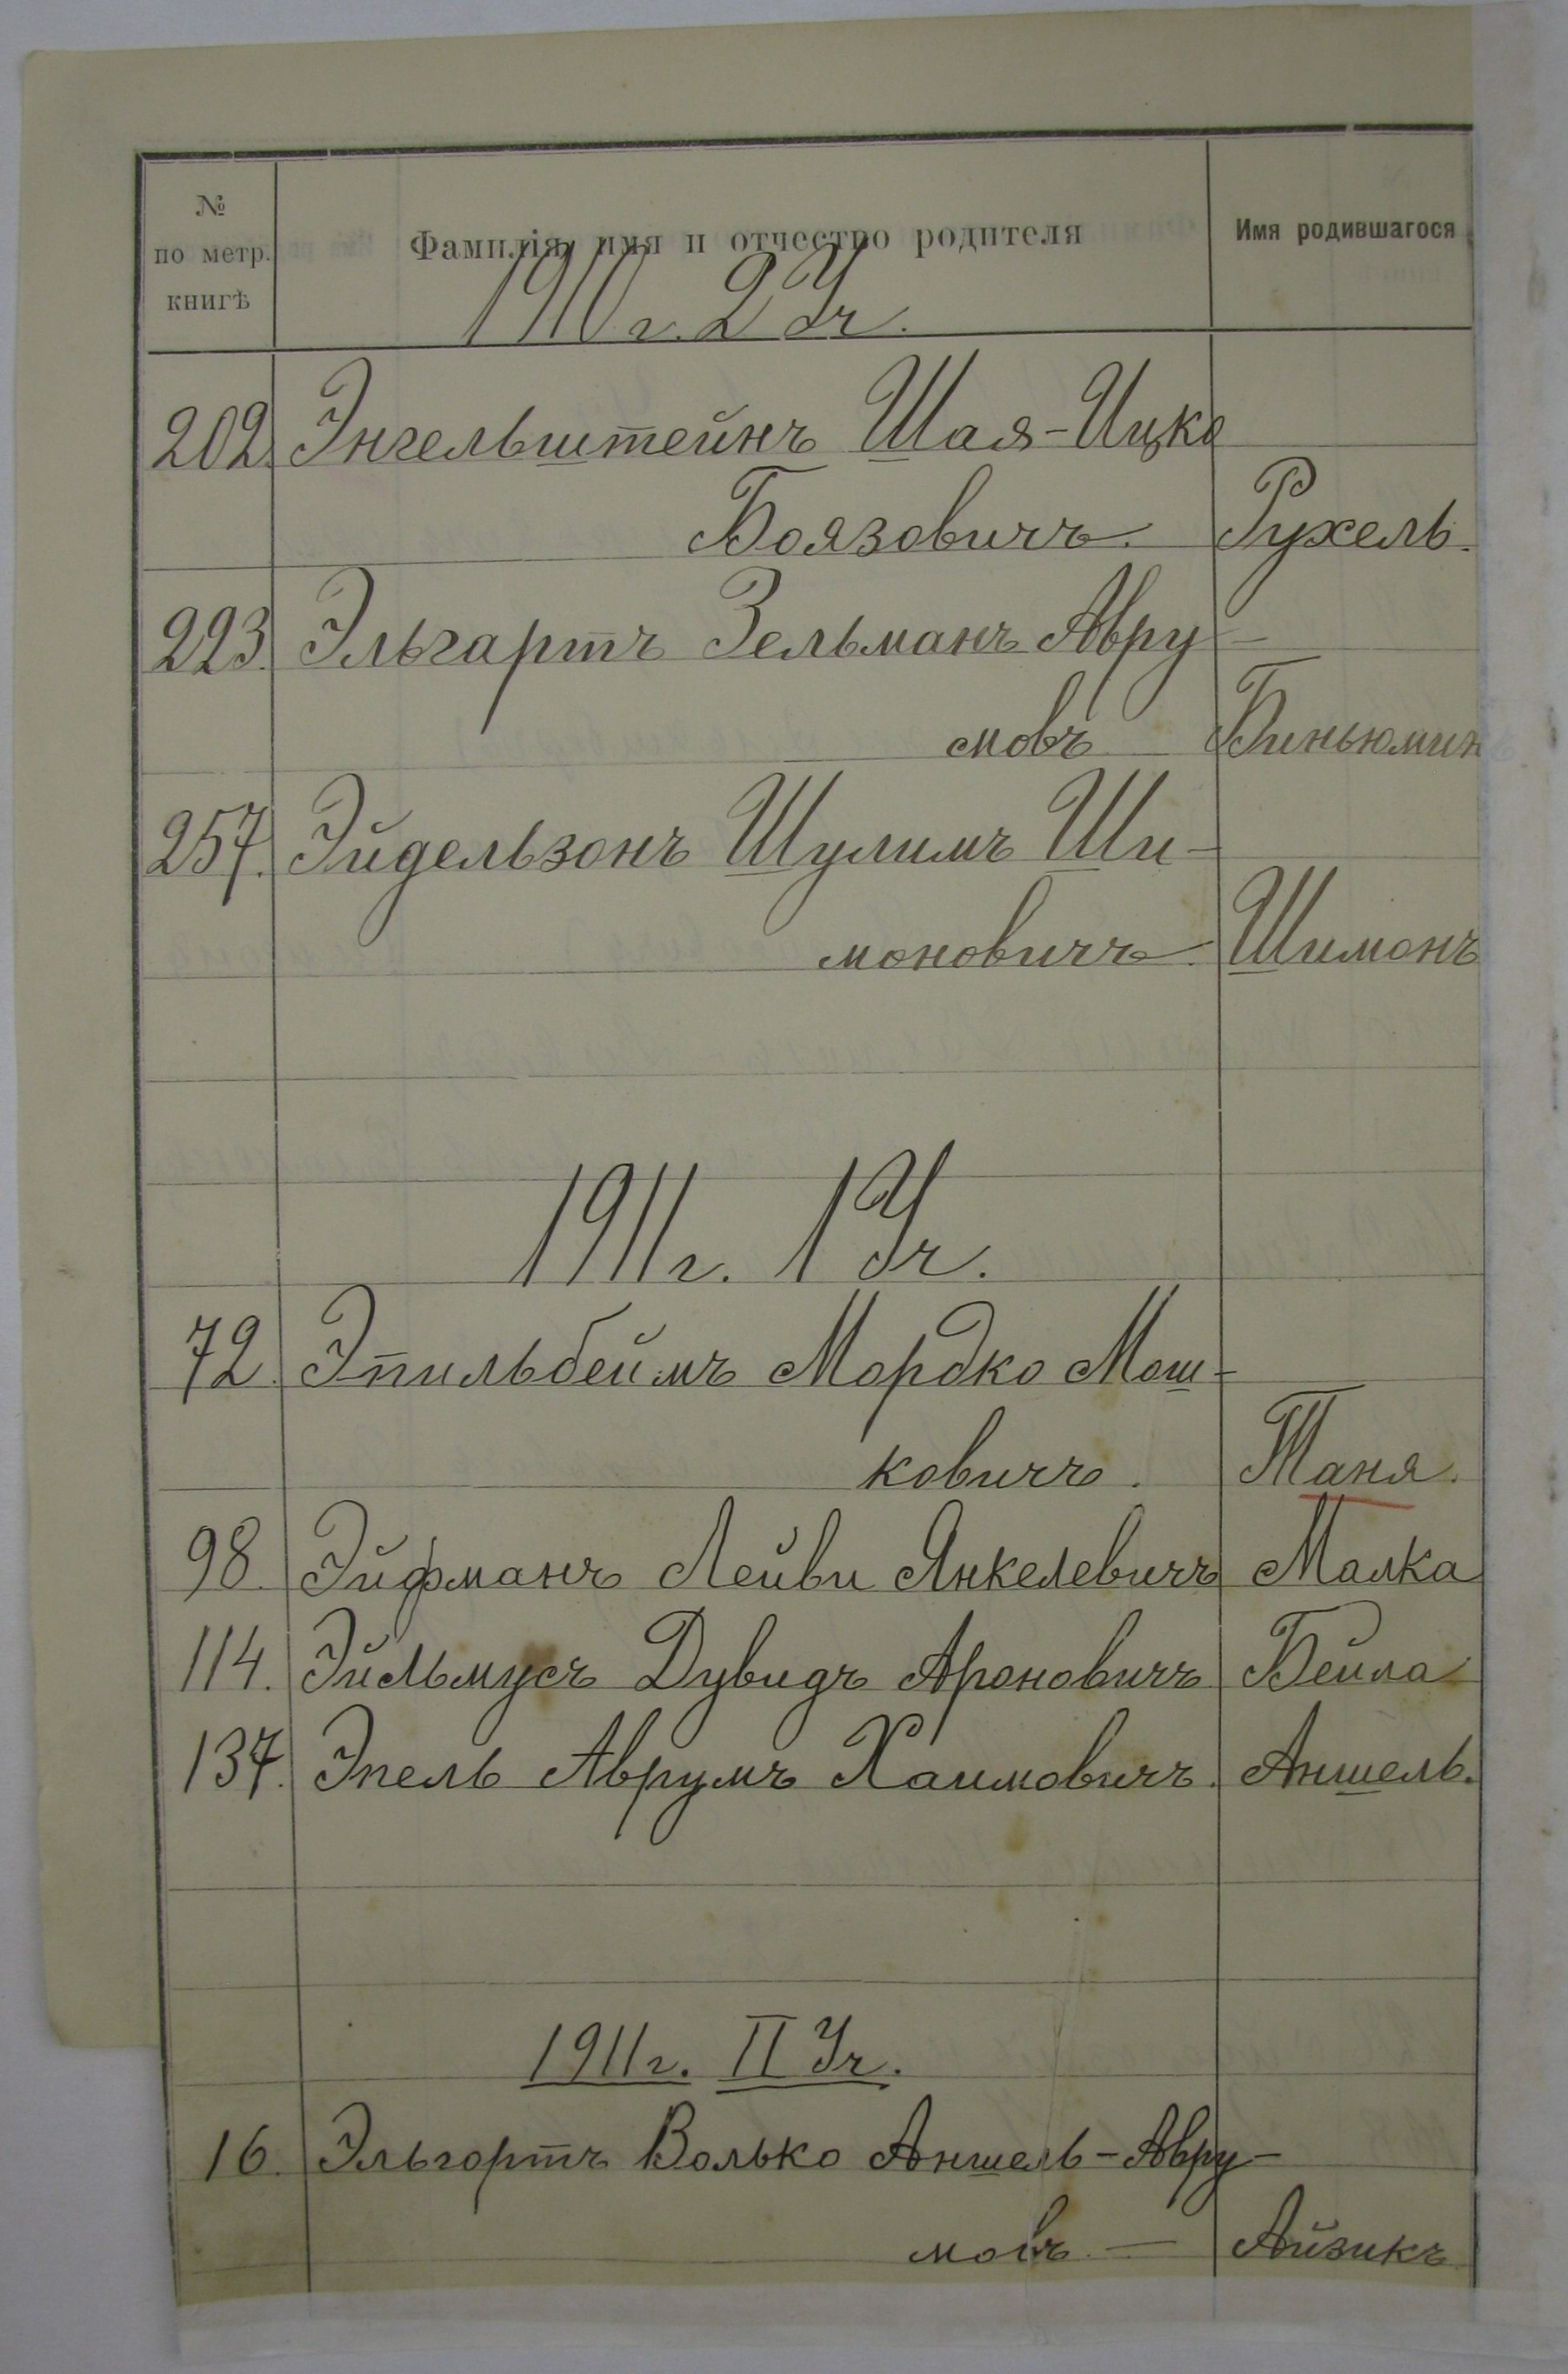 №
по метр.
книгѣ
Фамилія, имя и отчество родителя
Имя родившагося
1910 г. 2 Уч.
202. Энгельштейнъ Шая-Ицко
Боязовичъ. Рухель.
223. Эльгартъ Зельманъ Авру-
мовъ Биньюмин
257. Эйдельзонъ Шулимъ Ши-
моновичъ. Шимонъ
1911 г. 1 Уч.
72. Эпильбеймъ Мордко Мош-
ковичъ. Таня.
98. Эйфманъ Лейви Янкелевичъ Малка
114. Эйльмусъ Дувидъ Ароновичъ Бейла
137. Эпель Аврумъ Хаимовичъ. Аншель.
1911 г. II Уч.
16. Эльгортъ Волько Аншель-Авру-
мовъ — Айзикъ